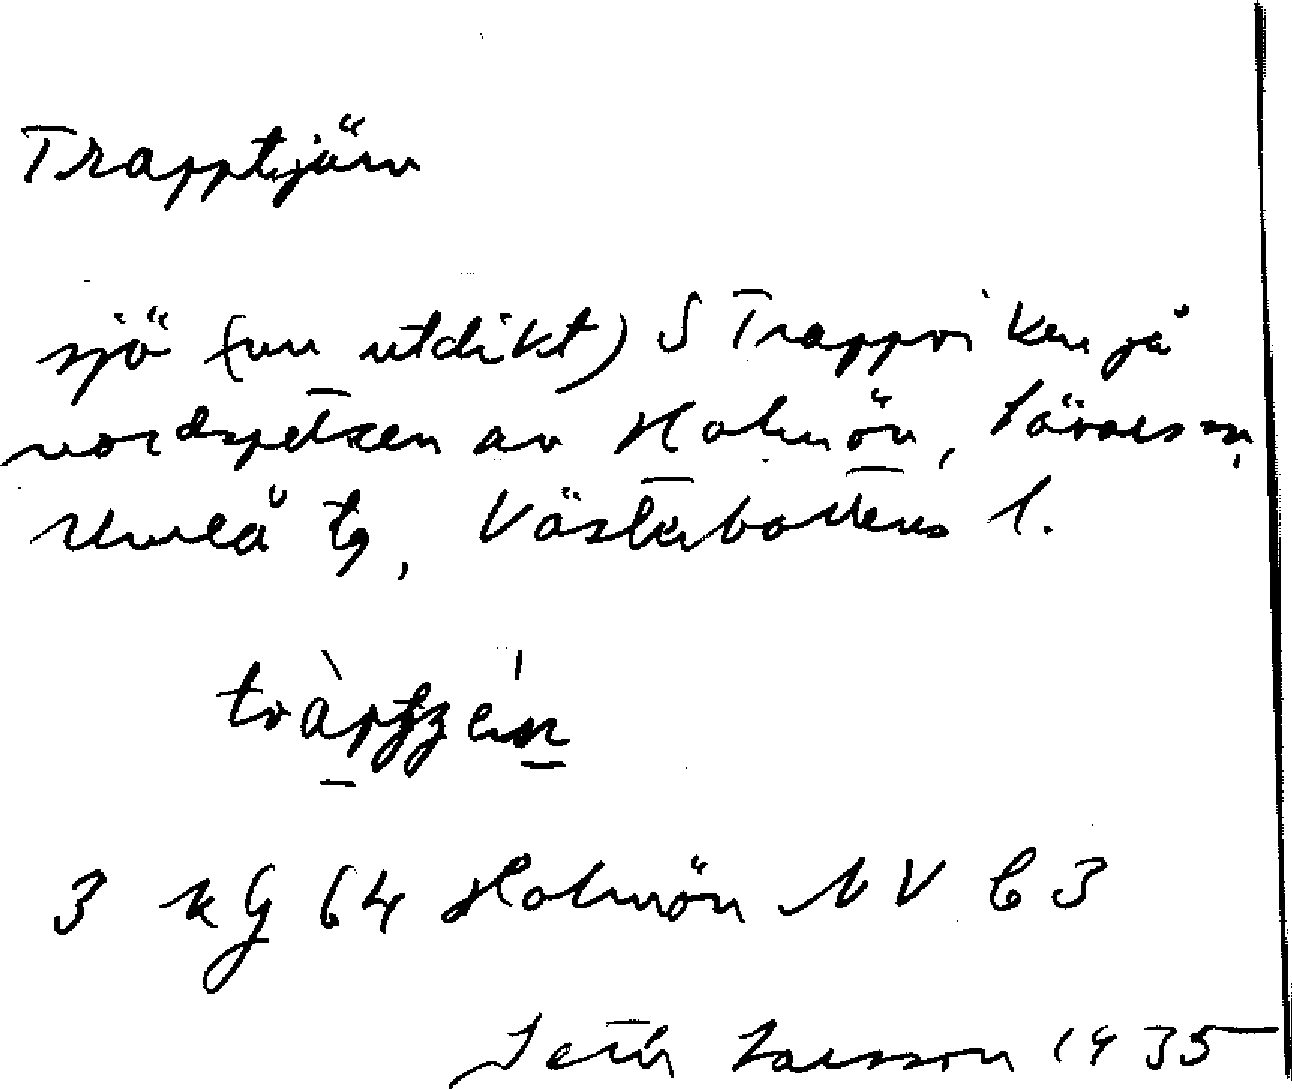 Trapptjärn
sjö (nu utdikt) S Trappviken på
nordspetsen av Holmön, Sävars sn,
Umeå tg, Västerbottens l.
3 kg 64 Holmön NV C3
Seth Larsson 1935